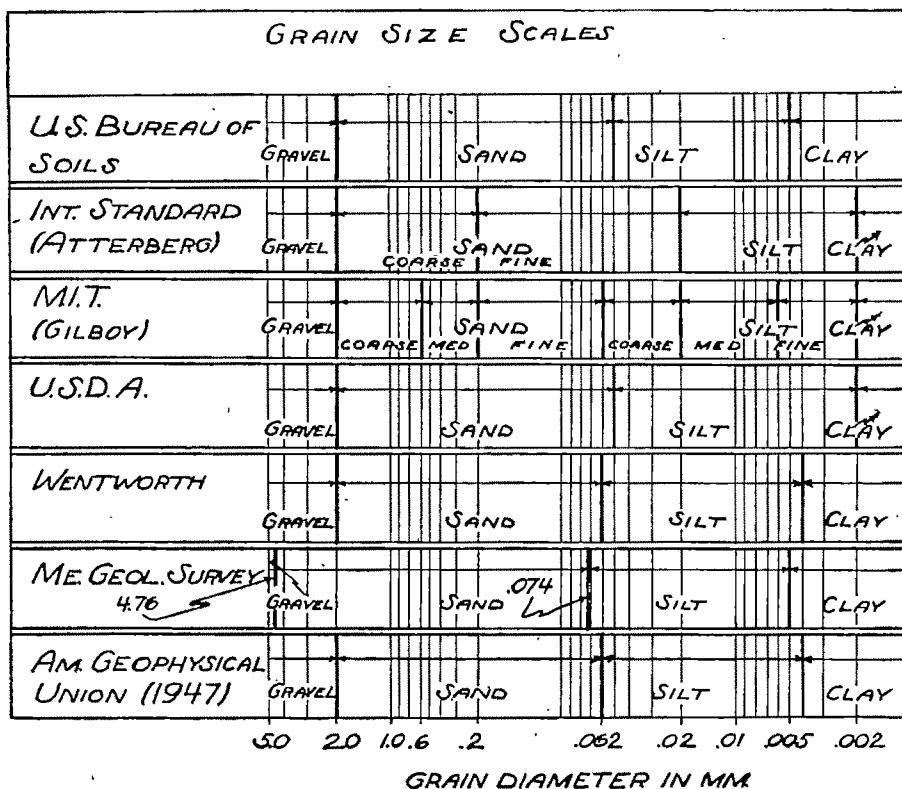 GRAIN SIZE SCALES
U.S. BUREAU OF
SOILS
GRAVEL SAND SILT CLAY
INT. STANDARD
(ATTERBERG)
GRAVEL SAND SILT CLAY
COARSE FINE
M.I.T.
(GILBOY)
GRAVEL SAND SILT CLAY
COARSE MED FINE COARSE MED FINE
U.S.D.A.
GRAVEL SAND SILT CLAY
WENTWORTH
GRAVEL SAND SILT CLAY
ME. GEOL. SURVEY
4.76 .074
GRAVEL SAND SILT CLAY
AM. GEOPHYSICAL
UNION (1947)
GRAVEL SAND SILT CLAY
5.0 2.0 1.0 .6 .2 .062 .02 .01 .005 .002
GRAIN DIAMETER IN MM.